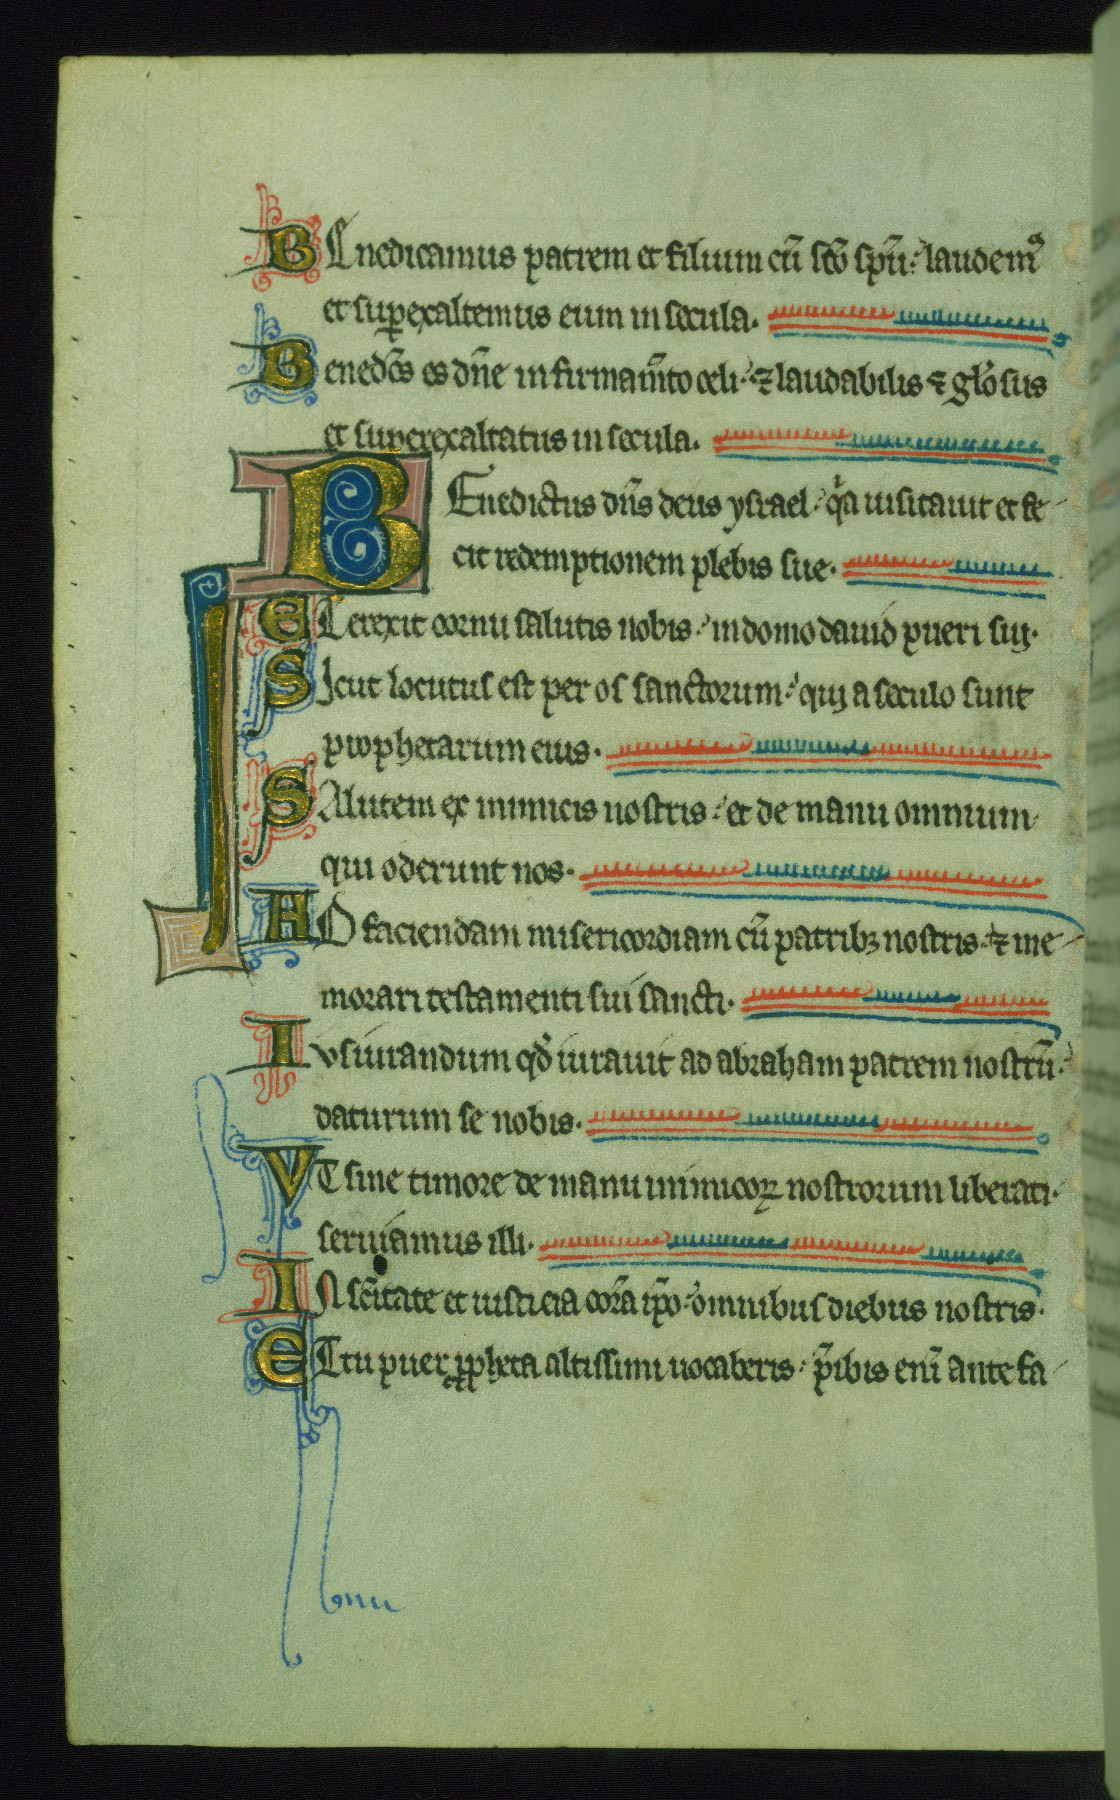 BEnedicamus patrem et filium cū sc̄o sp̄u: laudemꝰ
et suꝑexaltemus eum in secula.
Benedc̄s es dn̄e in firmam̄to celi: ⁊ laudabilis ⁊ gl̄osus
et superexaltatus in secula.
BEnedictus dn̄s deus ysrael: qͥa uisitauit et fe
cit redemptionem plebis sue.
ET erexit cornu salutis nobis: in domo dauid pueri sui.
SIcut locutus est per os sanctorum: qui a seculo sunt
prophetarum eius.
SAlutem ex inimicis nostris: et de manu omnium
qui oderunt nos.
AD faciendam misericordiam cū patribꝫ nostris: ⁊ me
morari testamenti sui sancti.
Iusiurandum qd̄ iurauit ad abraham patrem nostrū:
daturum se nobis.
VT sine timore de manu inimicoꝝ nostrorum liberati.
seruiamus illi.
IN sc̄itate et iusticia cor̄a ip̄o: omnibus diebus nostris.
ET tu puer ꝓpheta altissimi uocaberis: p̄ibis enī ante fa